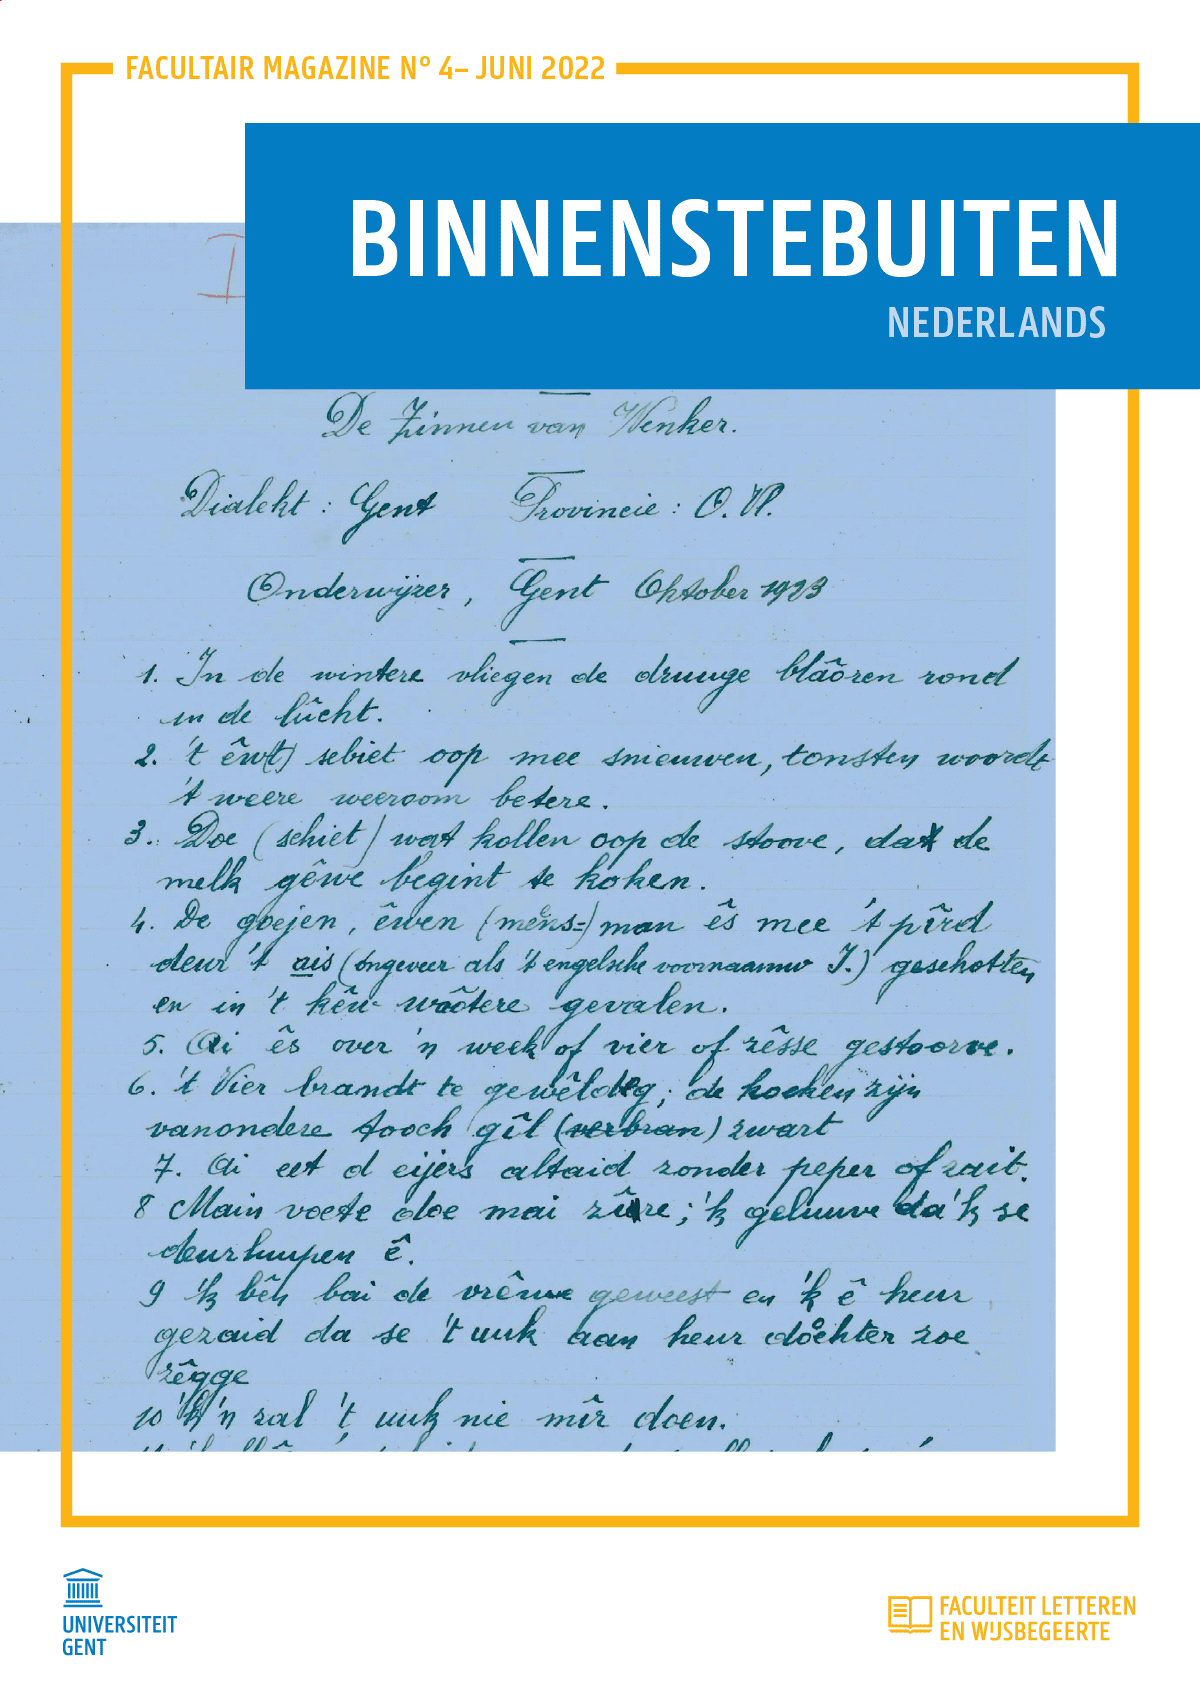 FACULTAIR MAGAZINE N° 4– JUNI 2022
BINNENSTEBUITEN
NEDERLANDS
De Zinnen van Wenker.
Dialekt : Gent Provincie : O. Vl.
Onderwijzer, Gent Oktober 1923
1. In de wintere vliegen de druuge blâoren rond
in de lûcht.
2. 't êw(t) sebiet oop mee snieuwen, tonsten woordt
't weere weeroom betere.
3. Doe (schiet) wat kollen oop de stoove, dat de
melk gêwe begint te koken.
4. De goejen, êwen (mêns=) man ês mee 't pîrd
deur 't ais (ongeveer als 't engelsche voornaamw I.) geschotten
en in 't kêw wâotere gevalen.
5. Ai ês over 'n week of vier of zêsse gestoorve.
6. 't Vier brandt te gewêldeg; de koeken zijn
vanondere tooch gîl (verbran) zwart
7. Ai eet d eijers altaid zonder peper of zait.
8 Main voete doe mai zîere; 'k geluuve da'k se
deurluupen ê.
9 'k bên bai de vrêuwe geweest en 'k ê heur
gezaid da se 't uuk aan heur dochter zoe
zêgge
10 'k 'n zal 't uuk nie mîr doen.
UNIVERSITEIT
GENT
FACULTEIT LETTEREN
EN WIJSBEGEERTE